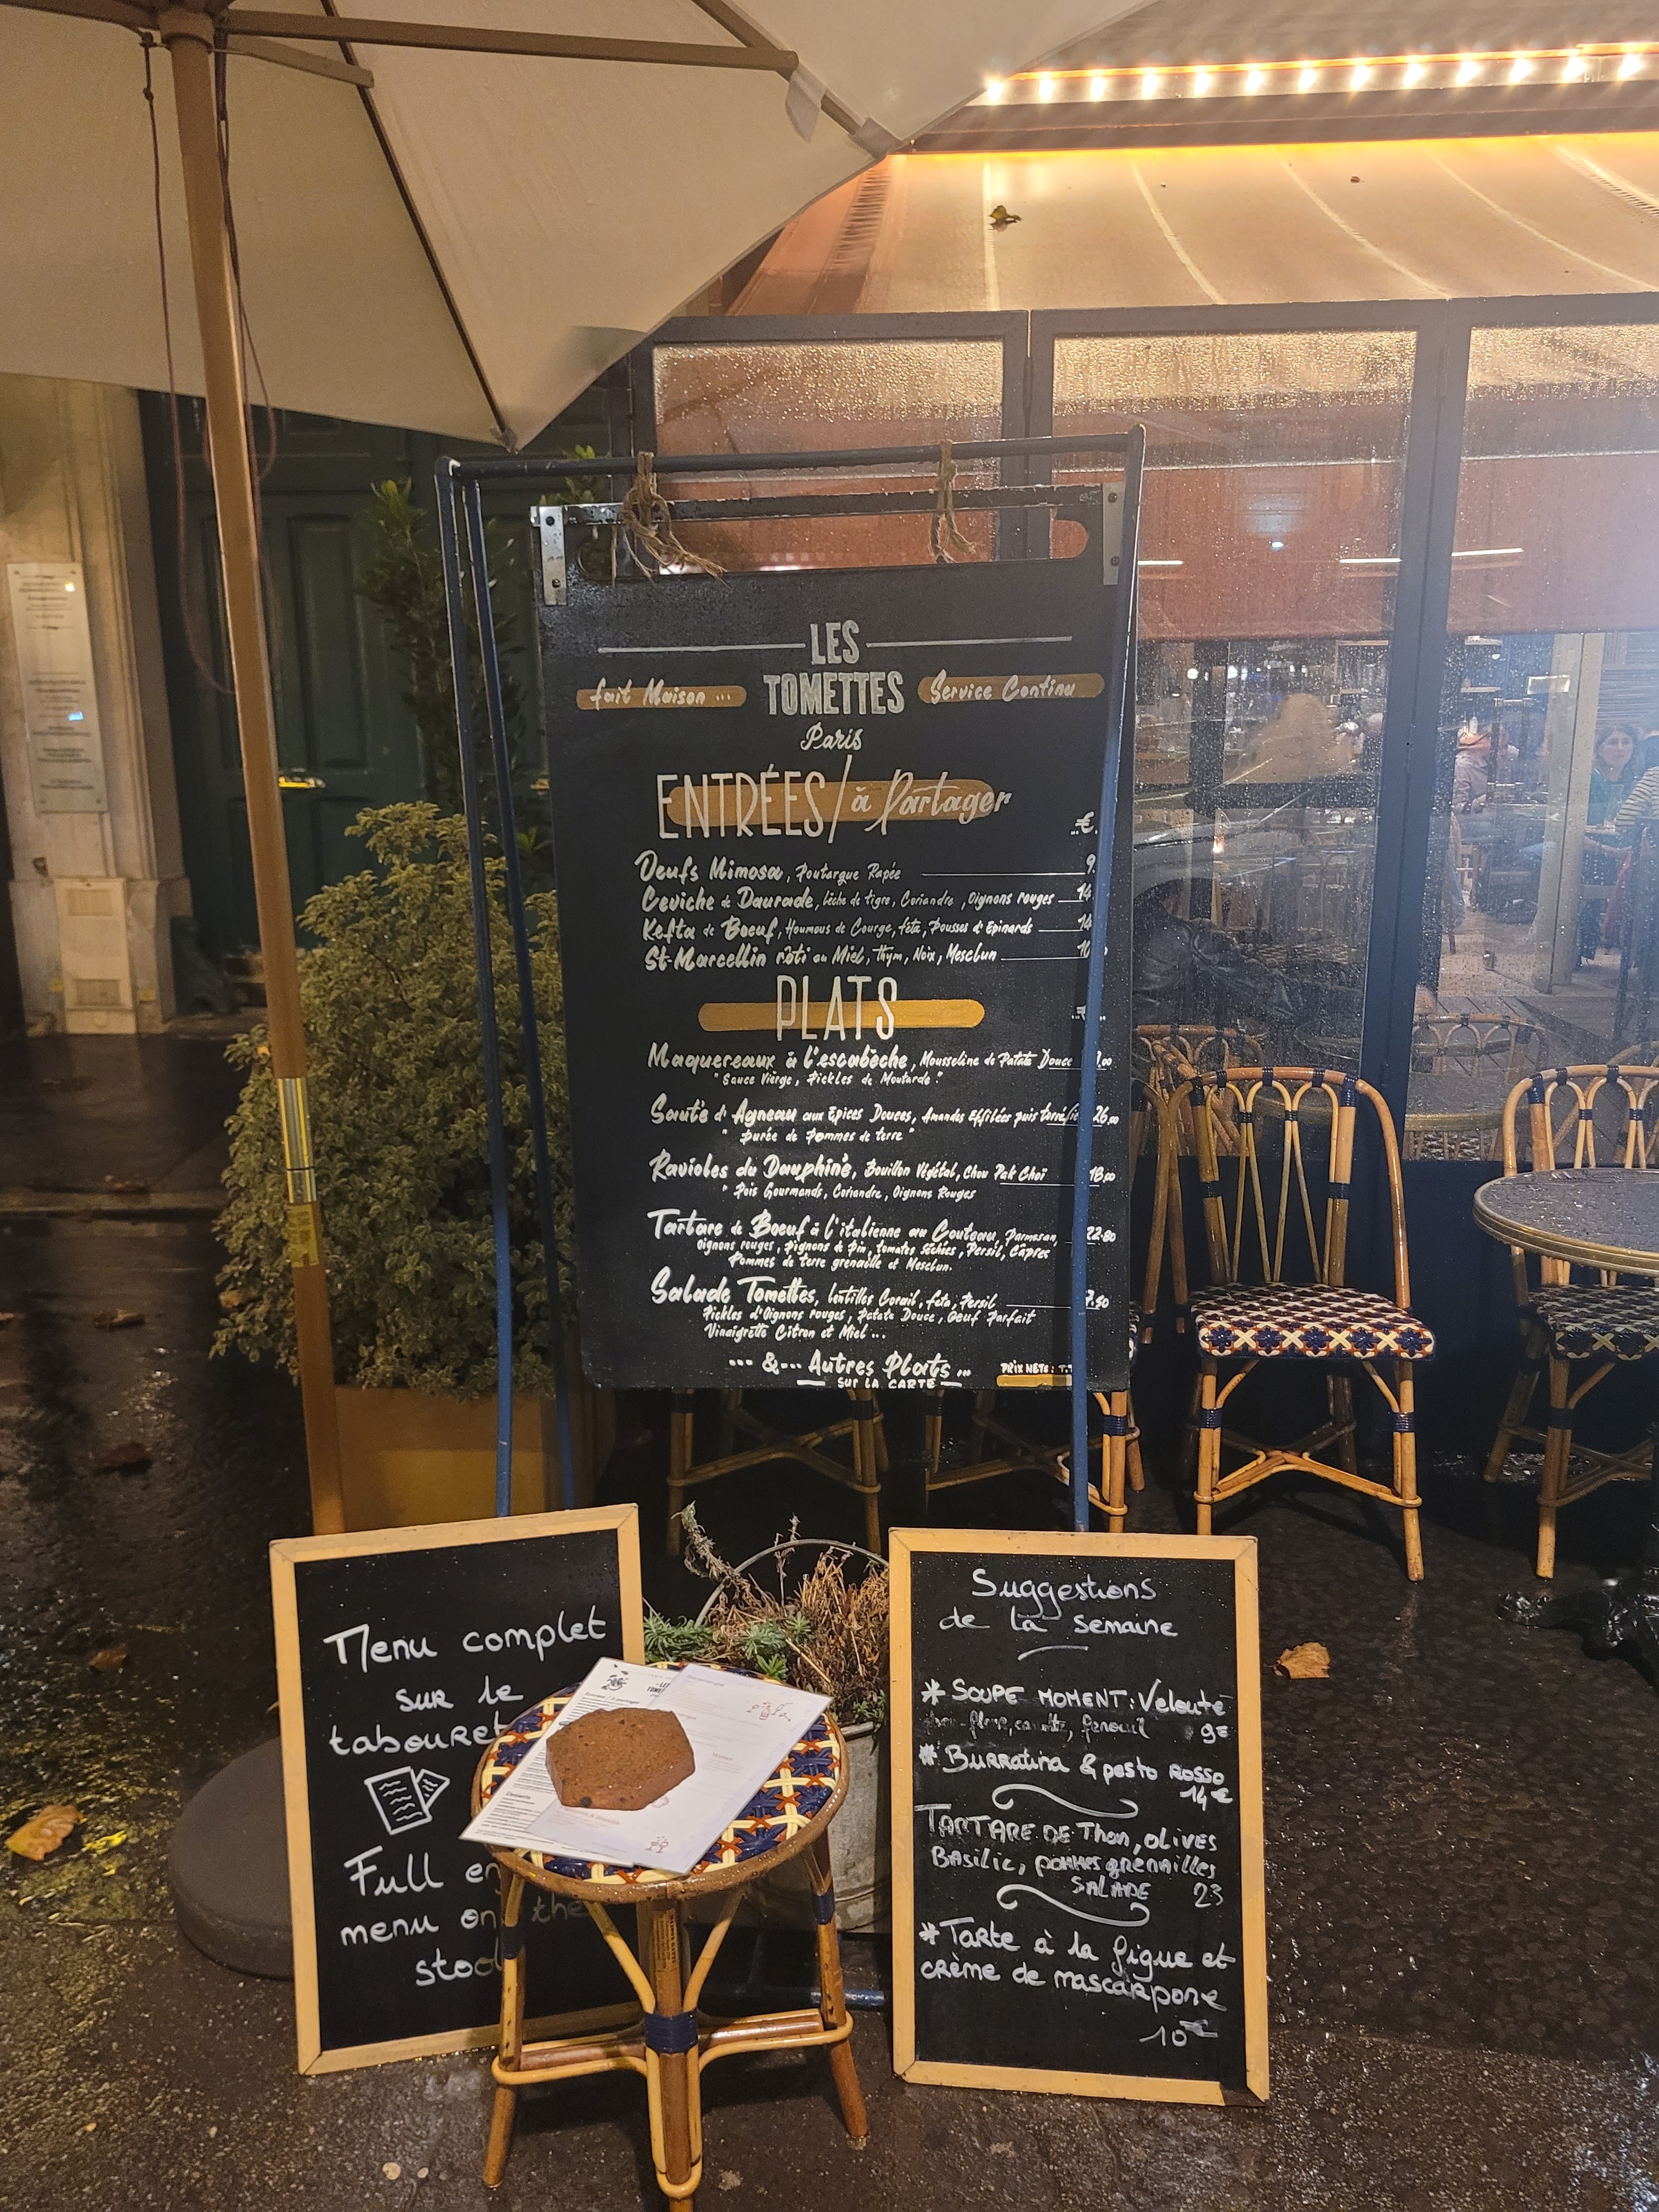 LES
TOMETTES
Paris
fait Maison ...
Service Continu
ENTRÉES/ à Partager
€
Oeufs Mimosa, Poutargue Rapée 9
Ceviche de Daurade, lèche de tigre, Coriandre, Oignons rouges 14
Kefta de Boeuf, Houmous de Courge, féta, Pousses d'Epinards 14
St-Marcellin rôti au Miel, Thym, Noix, Mesclun
PLATS
Maquereaux à l'escabèche, Mousseline de Patate Douce
"Sauce Vierge, Pickles de Moutarde"
Sauté d'Agneau aux Epices Douces, Amandes Effilées 26.00
"Purée de Pommes de terre"
Ravioles du Dauphiné, Bouillon Végétal, Chou Pak Choï 18.00
"Pois Gourmands, Coriandre, Oignons Rouges
Tartare de Boeuf à l'italienne au Couteau, Parmesan, 22.80
Oignons rouges, Pignons de Pin, tomates séchées, Persil, Câpres
Pommes de terre grenaille et Mesclun.
Salade Tomettes, lentilles Corail, feta, Persil
Pickles d'Oignons rouges, Patate Douce, Oeuf Parfait
Vinaigrette Citron et Miel ...
... & ... Autres Plats ...
SUR LA CARTE
PRIX NETS :
Menu complet
sur le
tabouret
Full
menu on the
stool
Suggestions
de la semaine
* SOUPE MOMENT: Velouté
fenouil 9€
* Burratina & pesto rosso
14€
TARTARE DE Thon, olives
Basilic, pommes grenailles
SALADE 23
* Tarte à la figue et
crème de mascarpone
10€